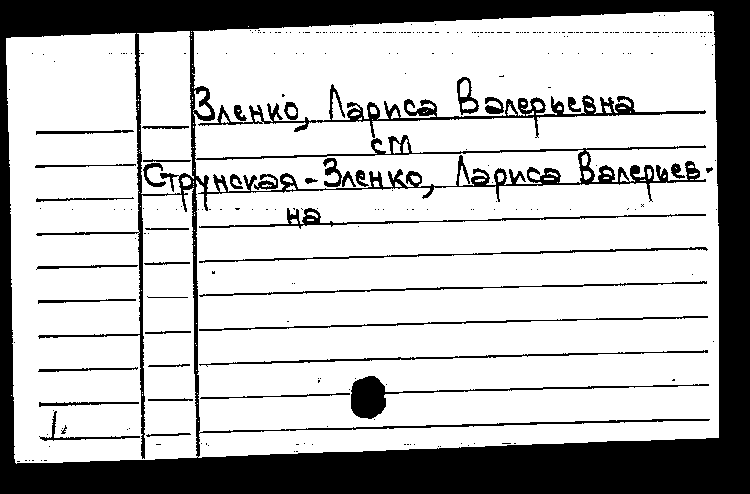 Зленко, Лариса Валерьевна
см
Струнская-Зленко, Лариса Валерьев-
на.
1.